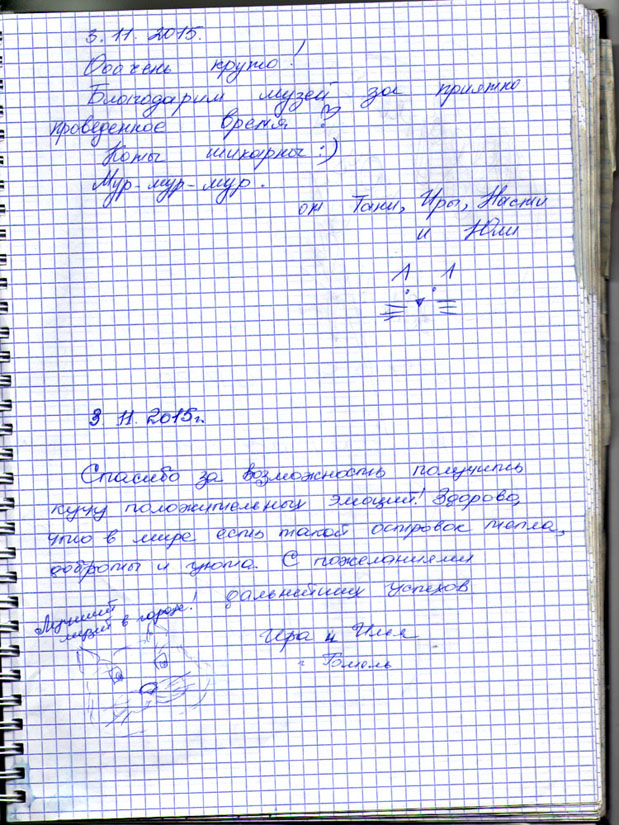 3. 11. 2015.
Ооочень круто!
Благодарим музей за приятно
проведенное время!
Коты шикарны :)
Мур-мур-мур.
от Тани, Иры, Насти
и Юли
3. 11. 2015г.
Спасибо за возможность получить
кучу положительных эмоций! Здорово,
что в мире есть такой островок тепла,
доброты и уюта. С пожеланиями
дальнейших успехов
Лучший
музей в городе!
Ира и Илья
г. Гомель